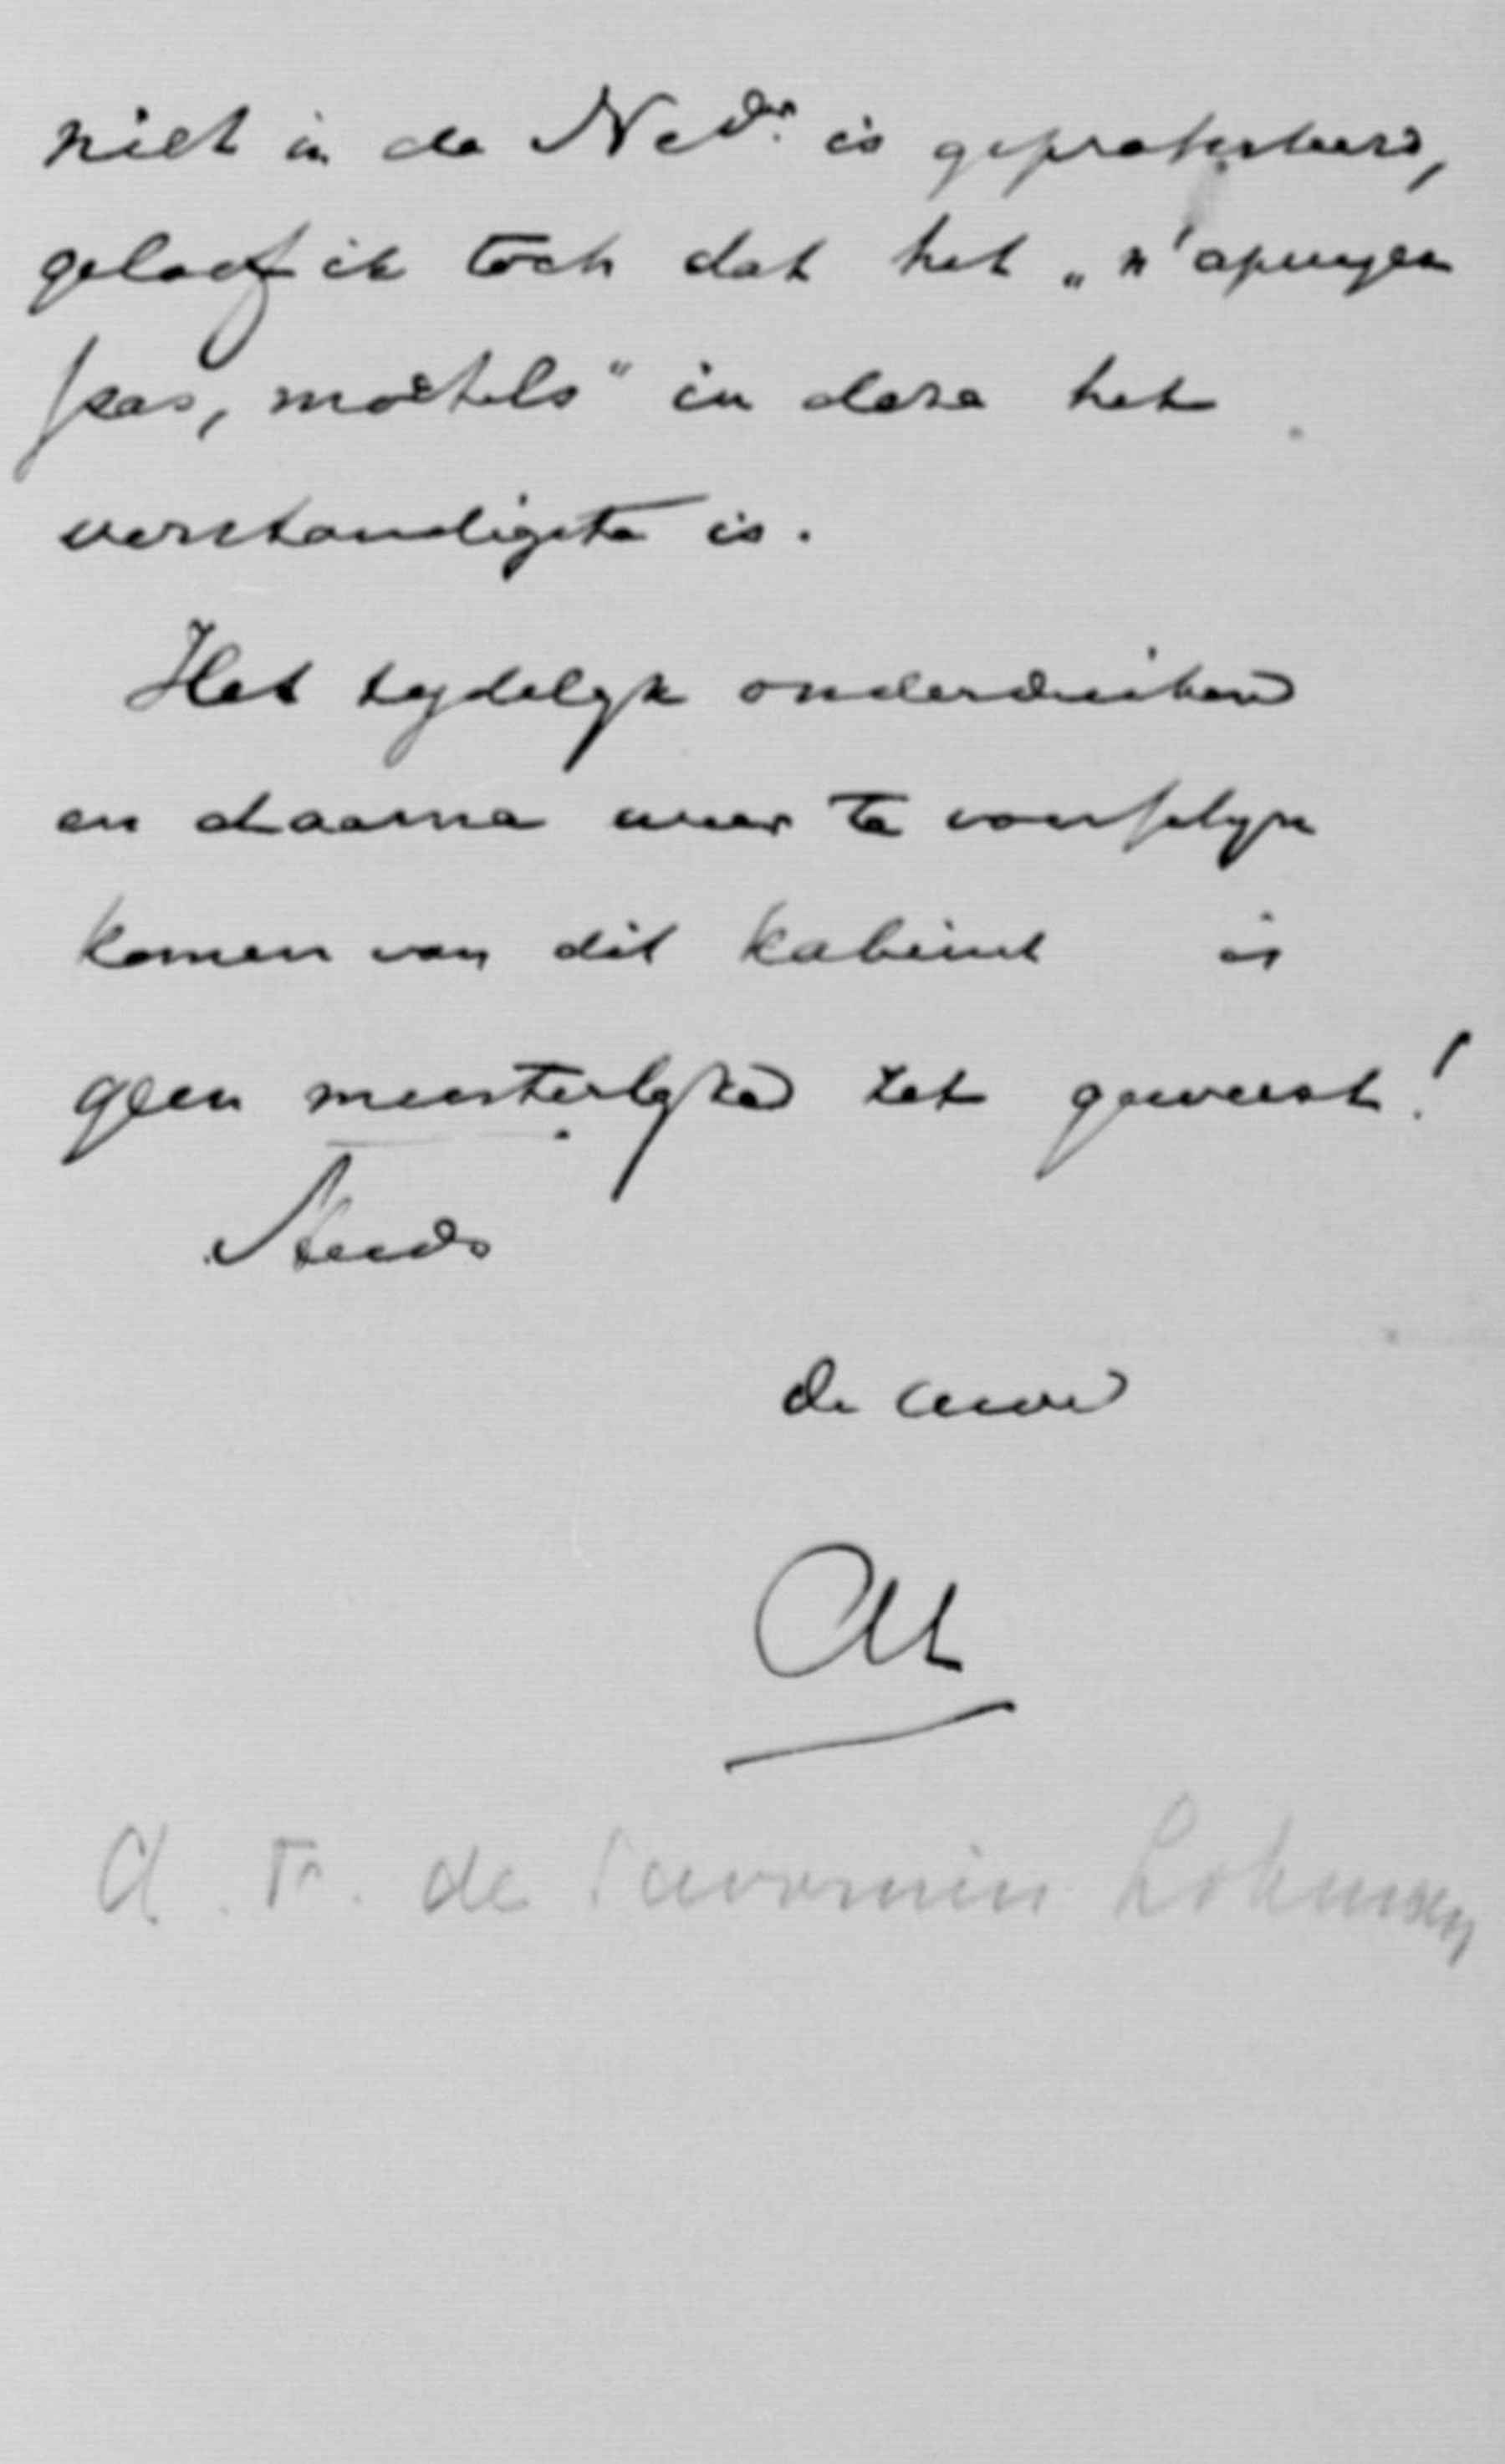 niet in de Neder is geprotesteerd,
geloof ik toch dat het „n'appuyez
pas, mortels" in deze het
verstandigste is.
Het tydelyk onderduiken
en daarna weer te voorschyn
komen van dit kabinet is
geen meesterlyke zet geweest!
Steeds
de uwe
AL
A. F. de Savornin Lohman